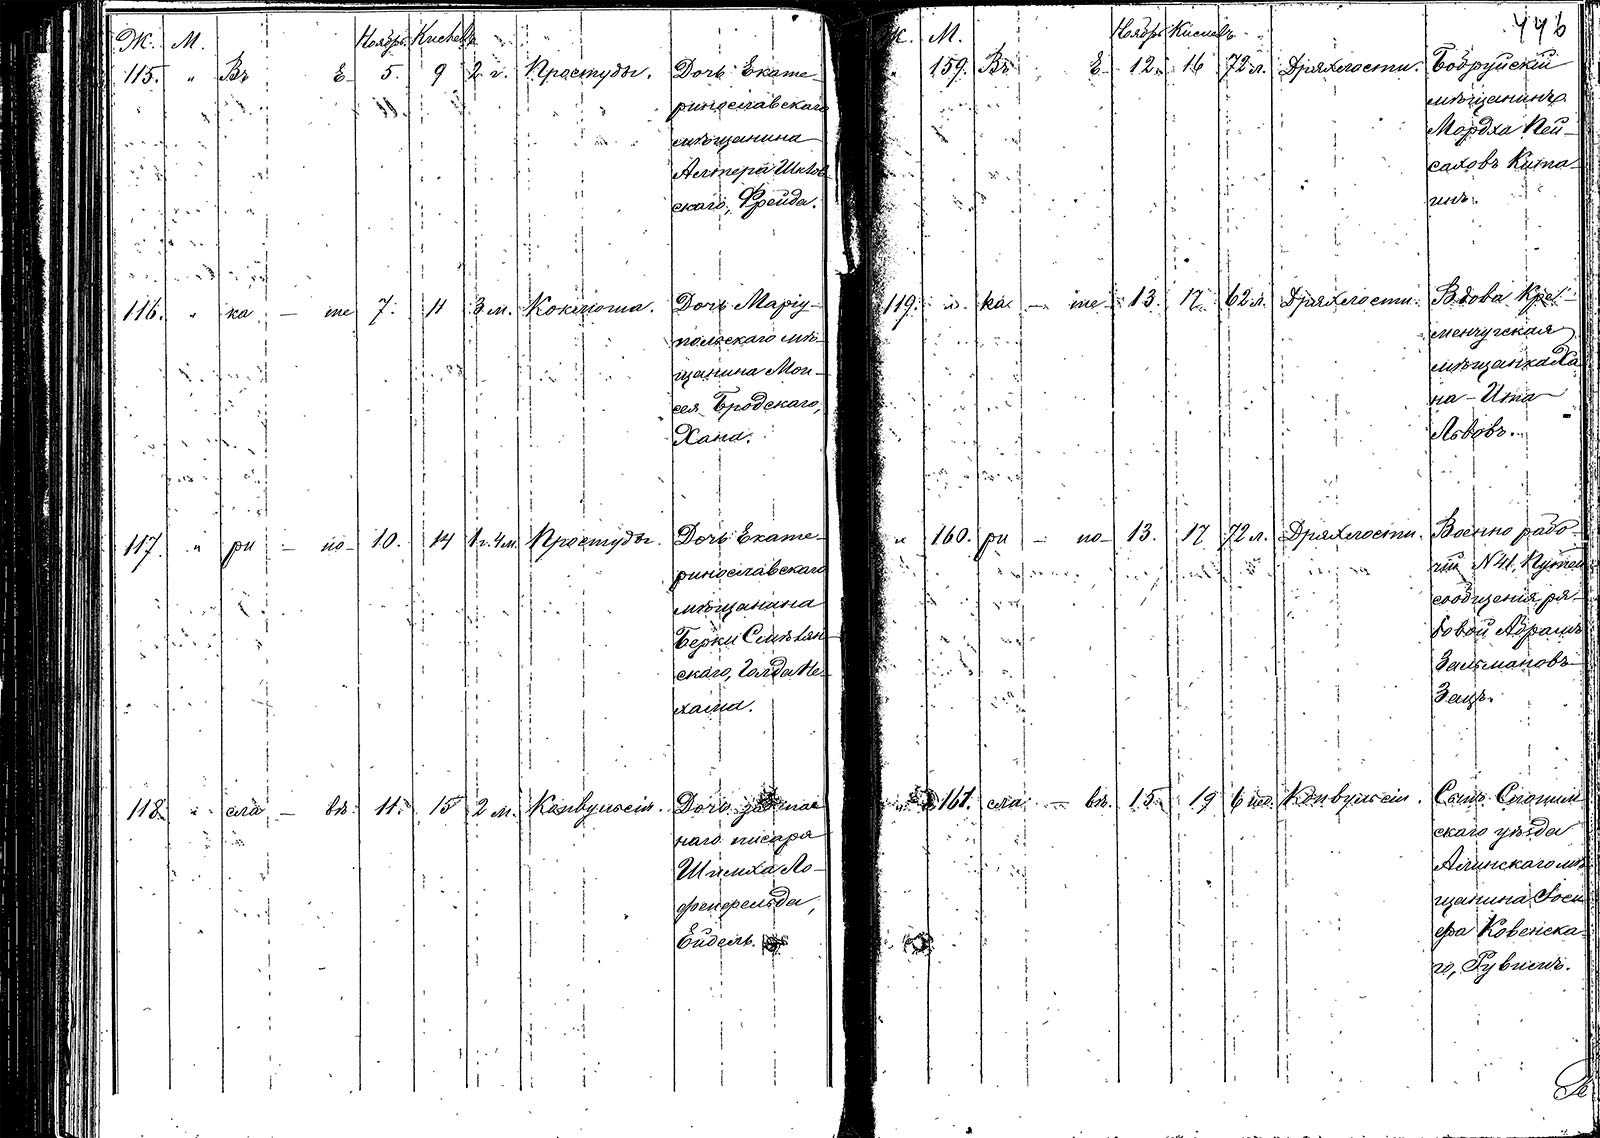 Ж. М. Ноябрь. Кислевъ
115. " Въ Е- 5. 9 2 г. Простуды. Дочь Екате-
ринославскаго
мѣщанина
Алтера Шклов
скаго, Фрейда.
116. " ка - те 7. 11 3 м. Коклюша. Дочь Маріу-
польскаго мѣ-
щанина Мои-
сея Бродскаго,
Хана.
117. " ри - по- 10. 14 1 г. 4 м. Простуды. Дочь Екате-
ринославскаго
мѣщанина
Берки Смѣлян-
скаго, Голда Не-
хама.
118. " сла - вѣ. 11. 15 2 м. Конвульсіи. Дочь
наго писаря
Шлиха Ло-
френфельда,
Ейдель.
446
Ж. М. Ноябрь Кислевъ
" 159. Въ Е- 12. 16 72 л. Дряхлости. Бобруйскій
мѣщанинъ
Мордха Пей-
саховъ Кита-
инъ.
119. " ка - те- 13. 17 62 л. Дряхлости. Вдова Кре-
менчугская
мѣщанка Ха-
на-Ита
Львовъ.
" 160. ри - по- 13. 17 72 л. Дряхлости. Военно рабо-
чій N 41, Путей
сообщенія ря-
довой Абрамъ
Зальмановъ
Зацъ.
" 161. сла - вѣ. 15. 19 6 м. Конвульсіи. Сынъ Слоним
скаго уѣзда
мѣ-
щанина Іоси
фа Ковенска-
го, Рувимъ.